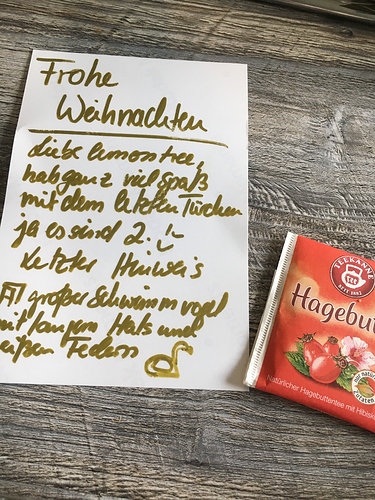 Frohe
Weihnachten
Liebe lemontree,
hab ganz viel Spaß
mit dem letzten Türchen
ja es sind 2. :-
Letzter Hinweis
großer Schwimmvogel
mit langem Hals und
eißen Federn
TEEKANNE
SEIT 1882
Hagebut
Natürlicher Hagebuttentee mit Hibisk